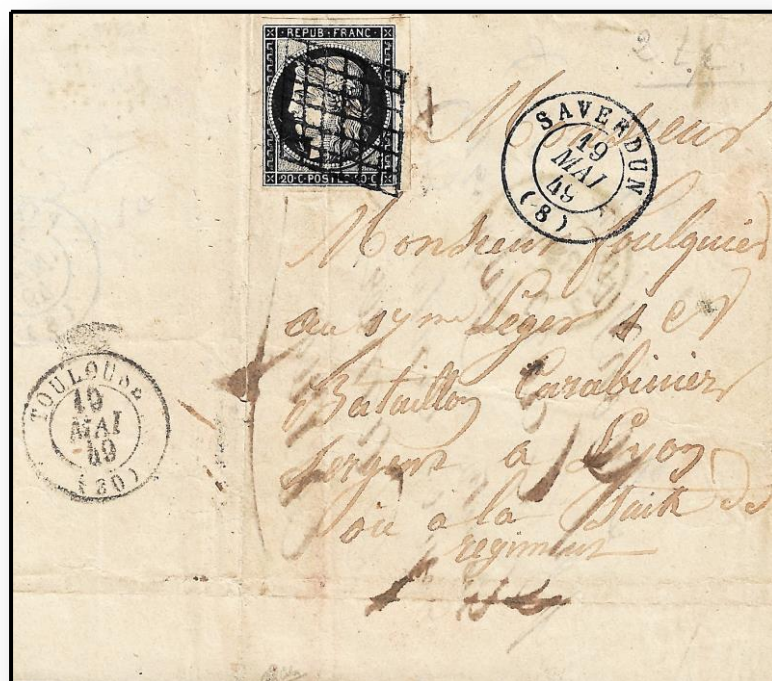 REPUB·FRANC·
20·C·POSTE·20·C
SAVERDUN
19
MAI
49
(8)
Monsieur
Monsieur Foulquier
au 17me Léger 1 er
Bataillon Carabinier
Sergent a Lyon
où à la Suite du
regiment
TOULOUSE
19
MAI
49
(30)